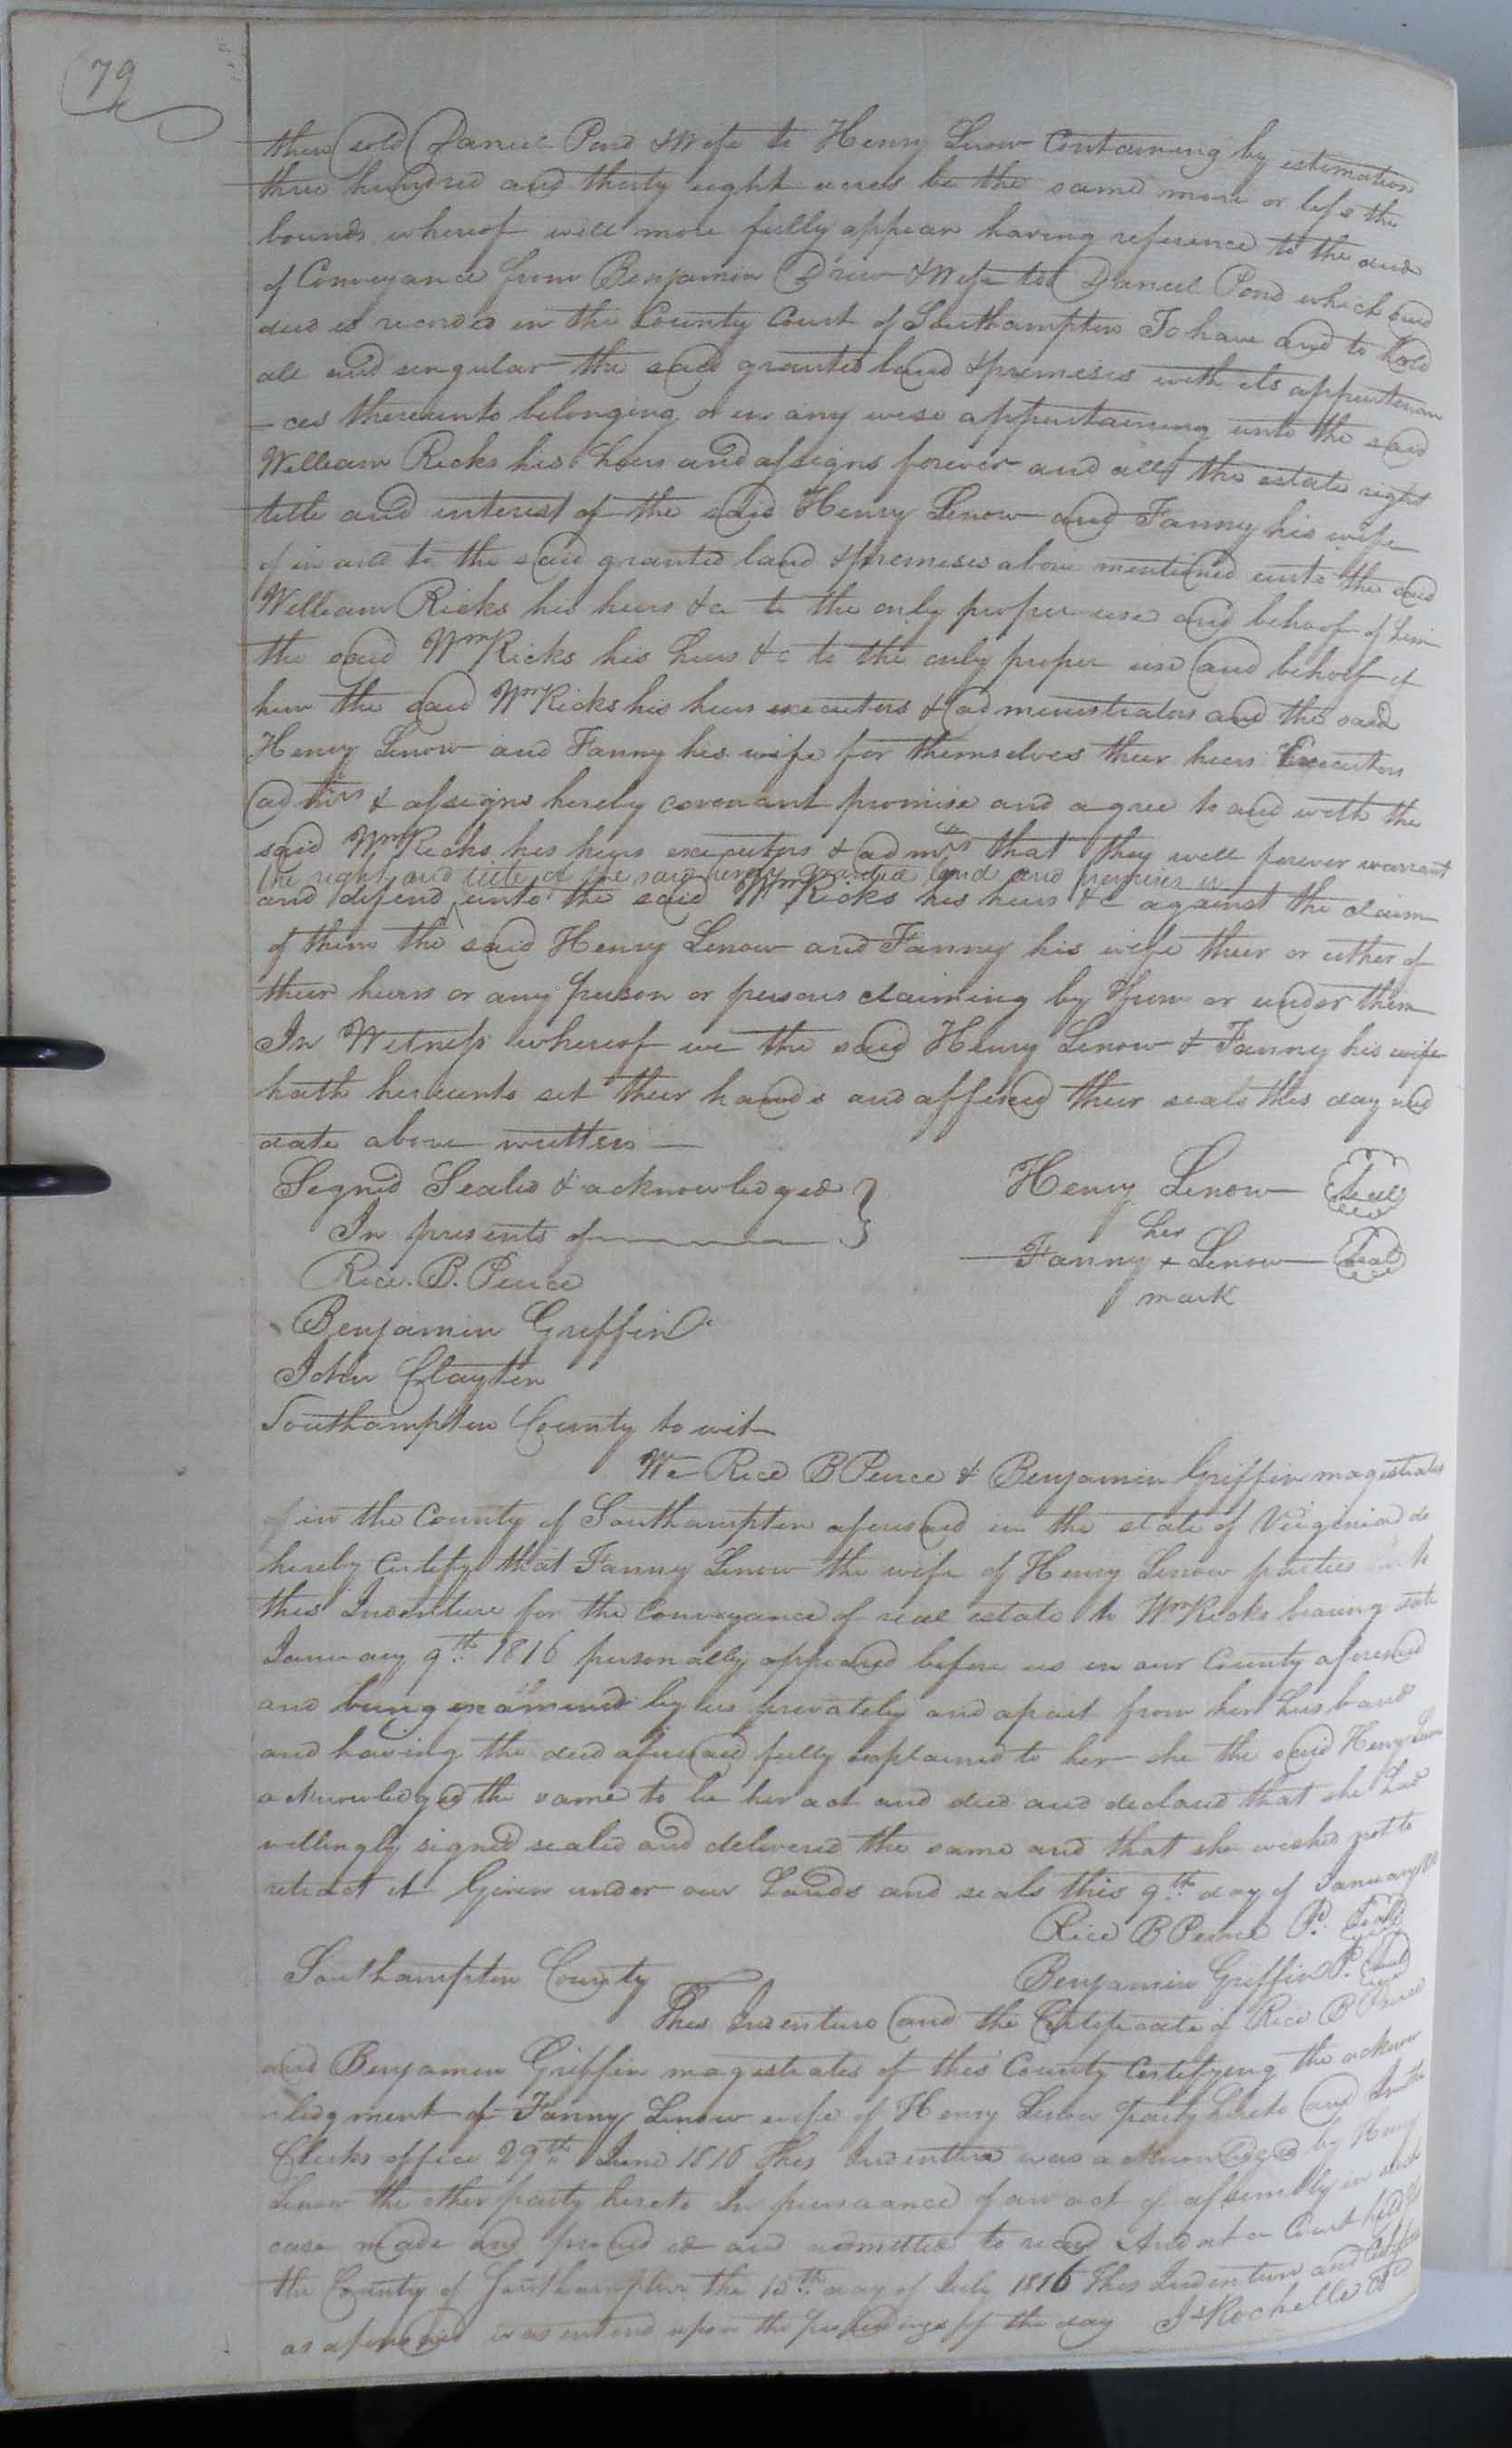 79
then sold Daniel Pond & Wife to Henry Lenow Containing by estimation
three hundred and thirty eight acres be the same more or less the
bounds whereof will more fully appear having reference to the deed
of Conveyance from Benjamin Drew & Wife to Daniel Pond which said
deed is recorded in the County Court of Southampton To have and to hold
all and singular the said granted land & premises with its appurtenan
- ces thereunto belonging or in any wise appertaining unto the said
William Ricks his heirs and assigns forever and all the estate right
title and interest of the said Henry Lenow and Fanny his wife
of in and to the said granted land & premises above mentioned unto the said
William Ricks his heirs &c to the only proper use and behoof of him
the said Wm Ricks his heirs &c to the only proper use and behoof of
him the said Wm Ricks his heirs executors & administrators and the said
Henry Lenow and Fanny his wife for themselves their heirs Executors
admrs & assigns hereby covenant promise and agree to and with the
said Wm Ricks his heirs executors & admrs that they will forever warrant
the right and title of the said hereby granted land and premises
and defend unto the said Wm Ricks his heirs &c against the claim
of them the said Henry Lenow and Fanny his wife their or either of
their heirs or any person or persons claiming by from or under them
In Witness whereof we the said Henry Lenow & Fanny his wife
hath hereunto set their hands and affixed their seals this day and
date above written
Signed Sealed & acknowledged
In presents of
Henry Lenow Seal
her
Fanny + Lenow Seal
mark
Rice. B. Peirce
Benjamin Griffin
John Clayton
Southampton County to wit
We Rice B Peirce & Benjamin Griffin magistrates
of in the County of Southampton aforesaid in the state of Virginia do
hereby certify that Fanny Lenow the wife of Henry Lenow parties to
this Indenture for the Conveyance of real estate to Wm Ricks bearing date
January 9th 1816 personally appeared before us in our County aforesaid
and being examined by us privately and apart from her husband
and having the deed aforesaid fully explained to her she the said Henry Lenow
acknowledged the same to be her act and deed and declared that she had
willingly signed sealed and delivered the same and that she wished not to
retract it Given under our hands and seals this 9th day of January
Rice B Peirce Seal
Benjamin Griffin Seal
Southampton County
This Indenture and the Certificate of Rice B Peirce
and Benjamin Griffin magistrates of this County Certifying the acknow
ledgment of Fanny Lenow wife of Henry Lenow party hereto and In the
Clerks office 29th June 1816 This Indenture was acknowledged by Henry
Lenow the other party hereto In pursuance of an act of assembly in such
case made and provided and admitted to record And at a Court held for
the County of Southampton the 15th day of July 1816 This Indenture and
as aforesaid was entered upon the proceedings of the day Js Rochelle